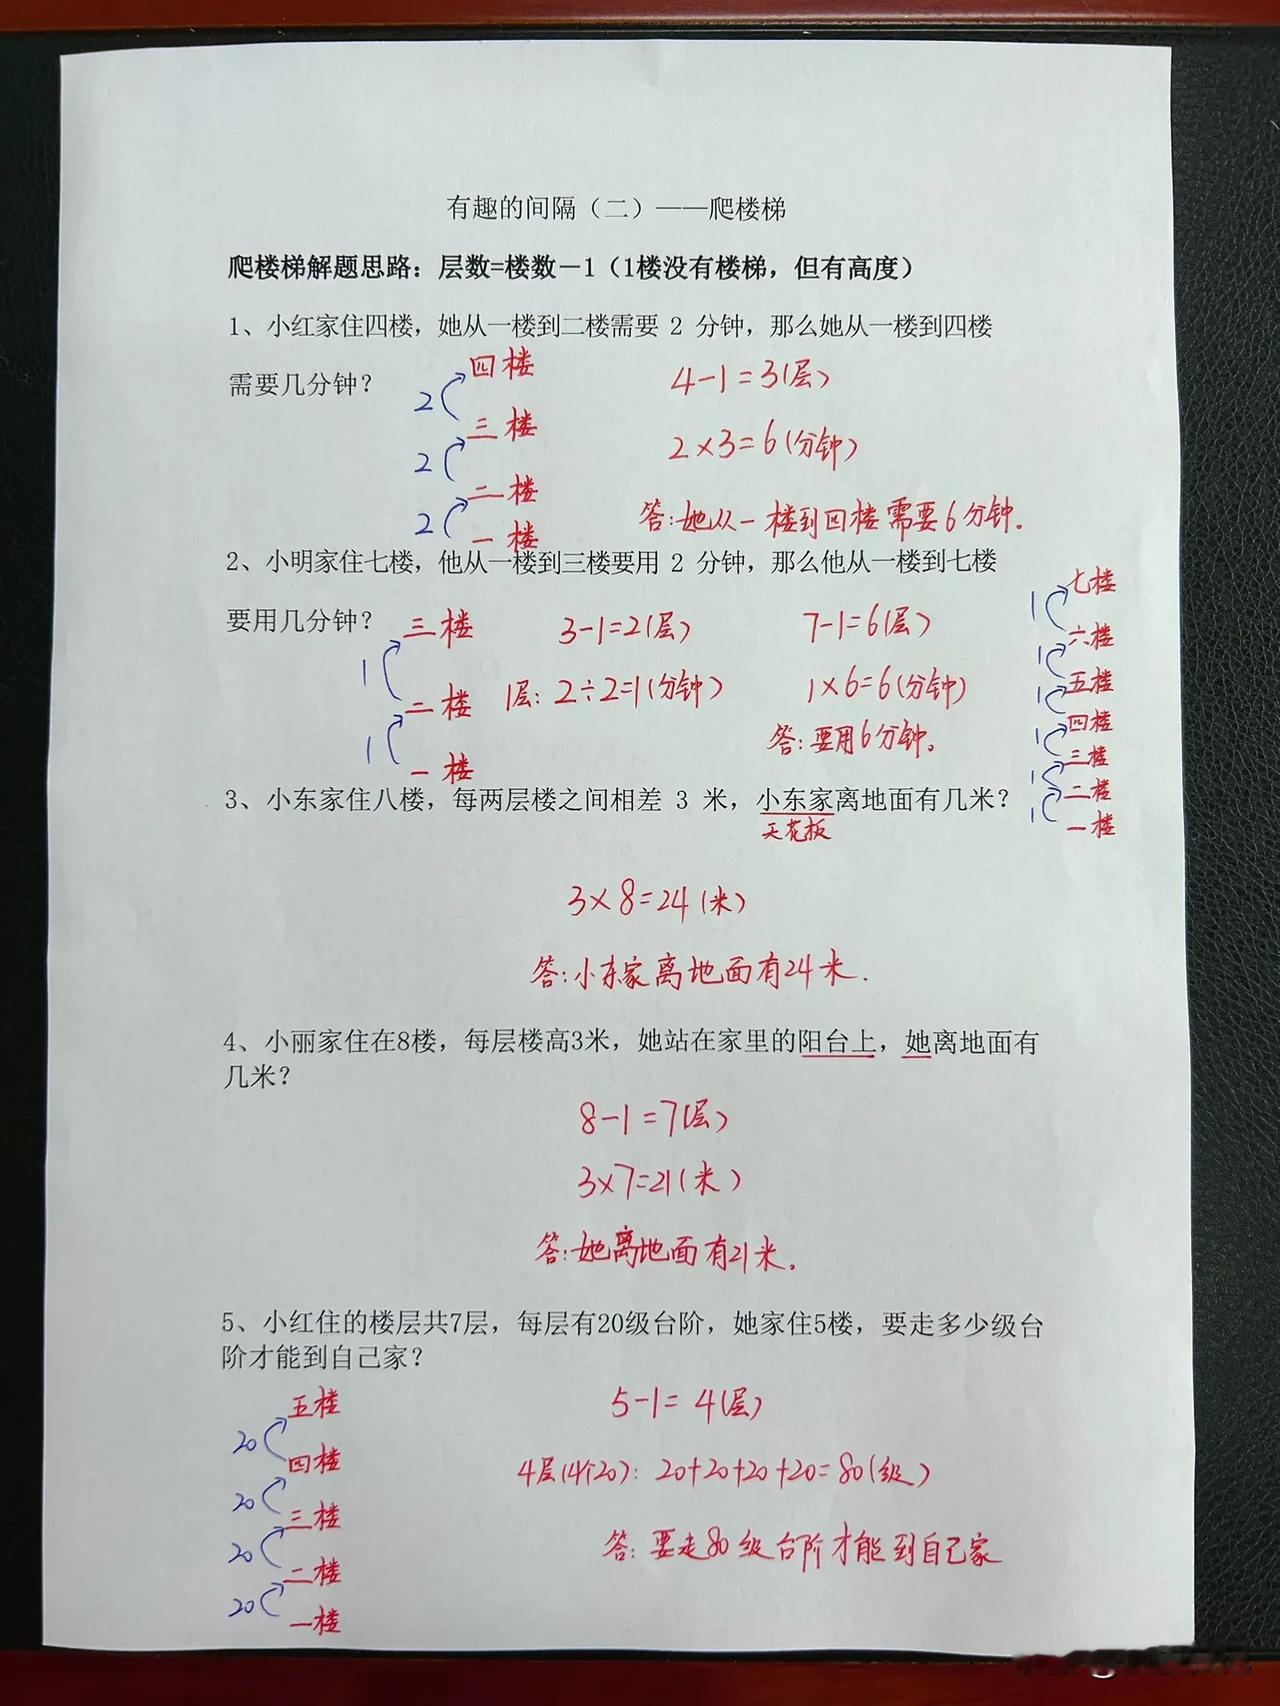 有趣的间隔（二）——爬楼梯
爬楼梯解题思路：层数=楼数－1（1楼没有楼梯，但有高度）
1、小红家住四楼，她从一楼到二楼需要 2 分钟，那么她从一楼到四楼
需要几分钟？
四楼
2
三楼
2
二楼
2
一楼
4-1=3(层)
2×3=6(分钟)
答:她从一楼到四楼需要6分钟.
2、小明家住七楼，他从一楼到三楼要用 2 分钟，那么他从一楼到七楼
要用几分钟？
三楼
1
二楼
1
一楼
3-1=2(层)
1层: 2÷2=1(分钟)
7-1=6(层)
1×6=6(分钟)
答:要用6分钟。
七楼
1
六楼
1
五楼
1
四楼
1
三楼
1
二楼
1
一楼
3、小东家住八楼，每两层楼之间相差 3 米，小东家离地面有几米？
天花板
3×8=24(米)
答:小东家离地面有24米.
4、小丽家住在8楼，每层楼高3米，她站在家里的阳台上，她离地面有
几米？
8-1=7(层)
3×7=21(米)
答:她离地面有21米.
5、小红住的楼层共7层，每层有20级台阶，她家住5楼，要走多少级台
阶才能到自己家？
五楼
20
四楼
20
三楼
20
二楼
20
一楼
5-1=4(层)
4层(4个20): 20+20+20+20=80(级)
答: 要走80级台阶才能到自己家